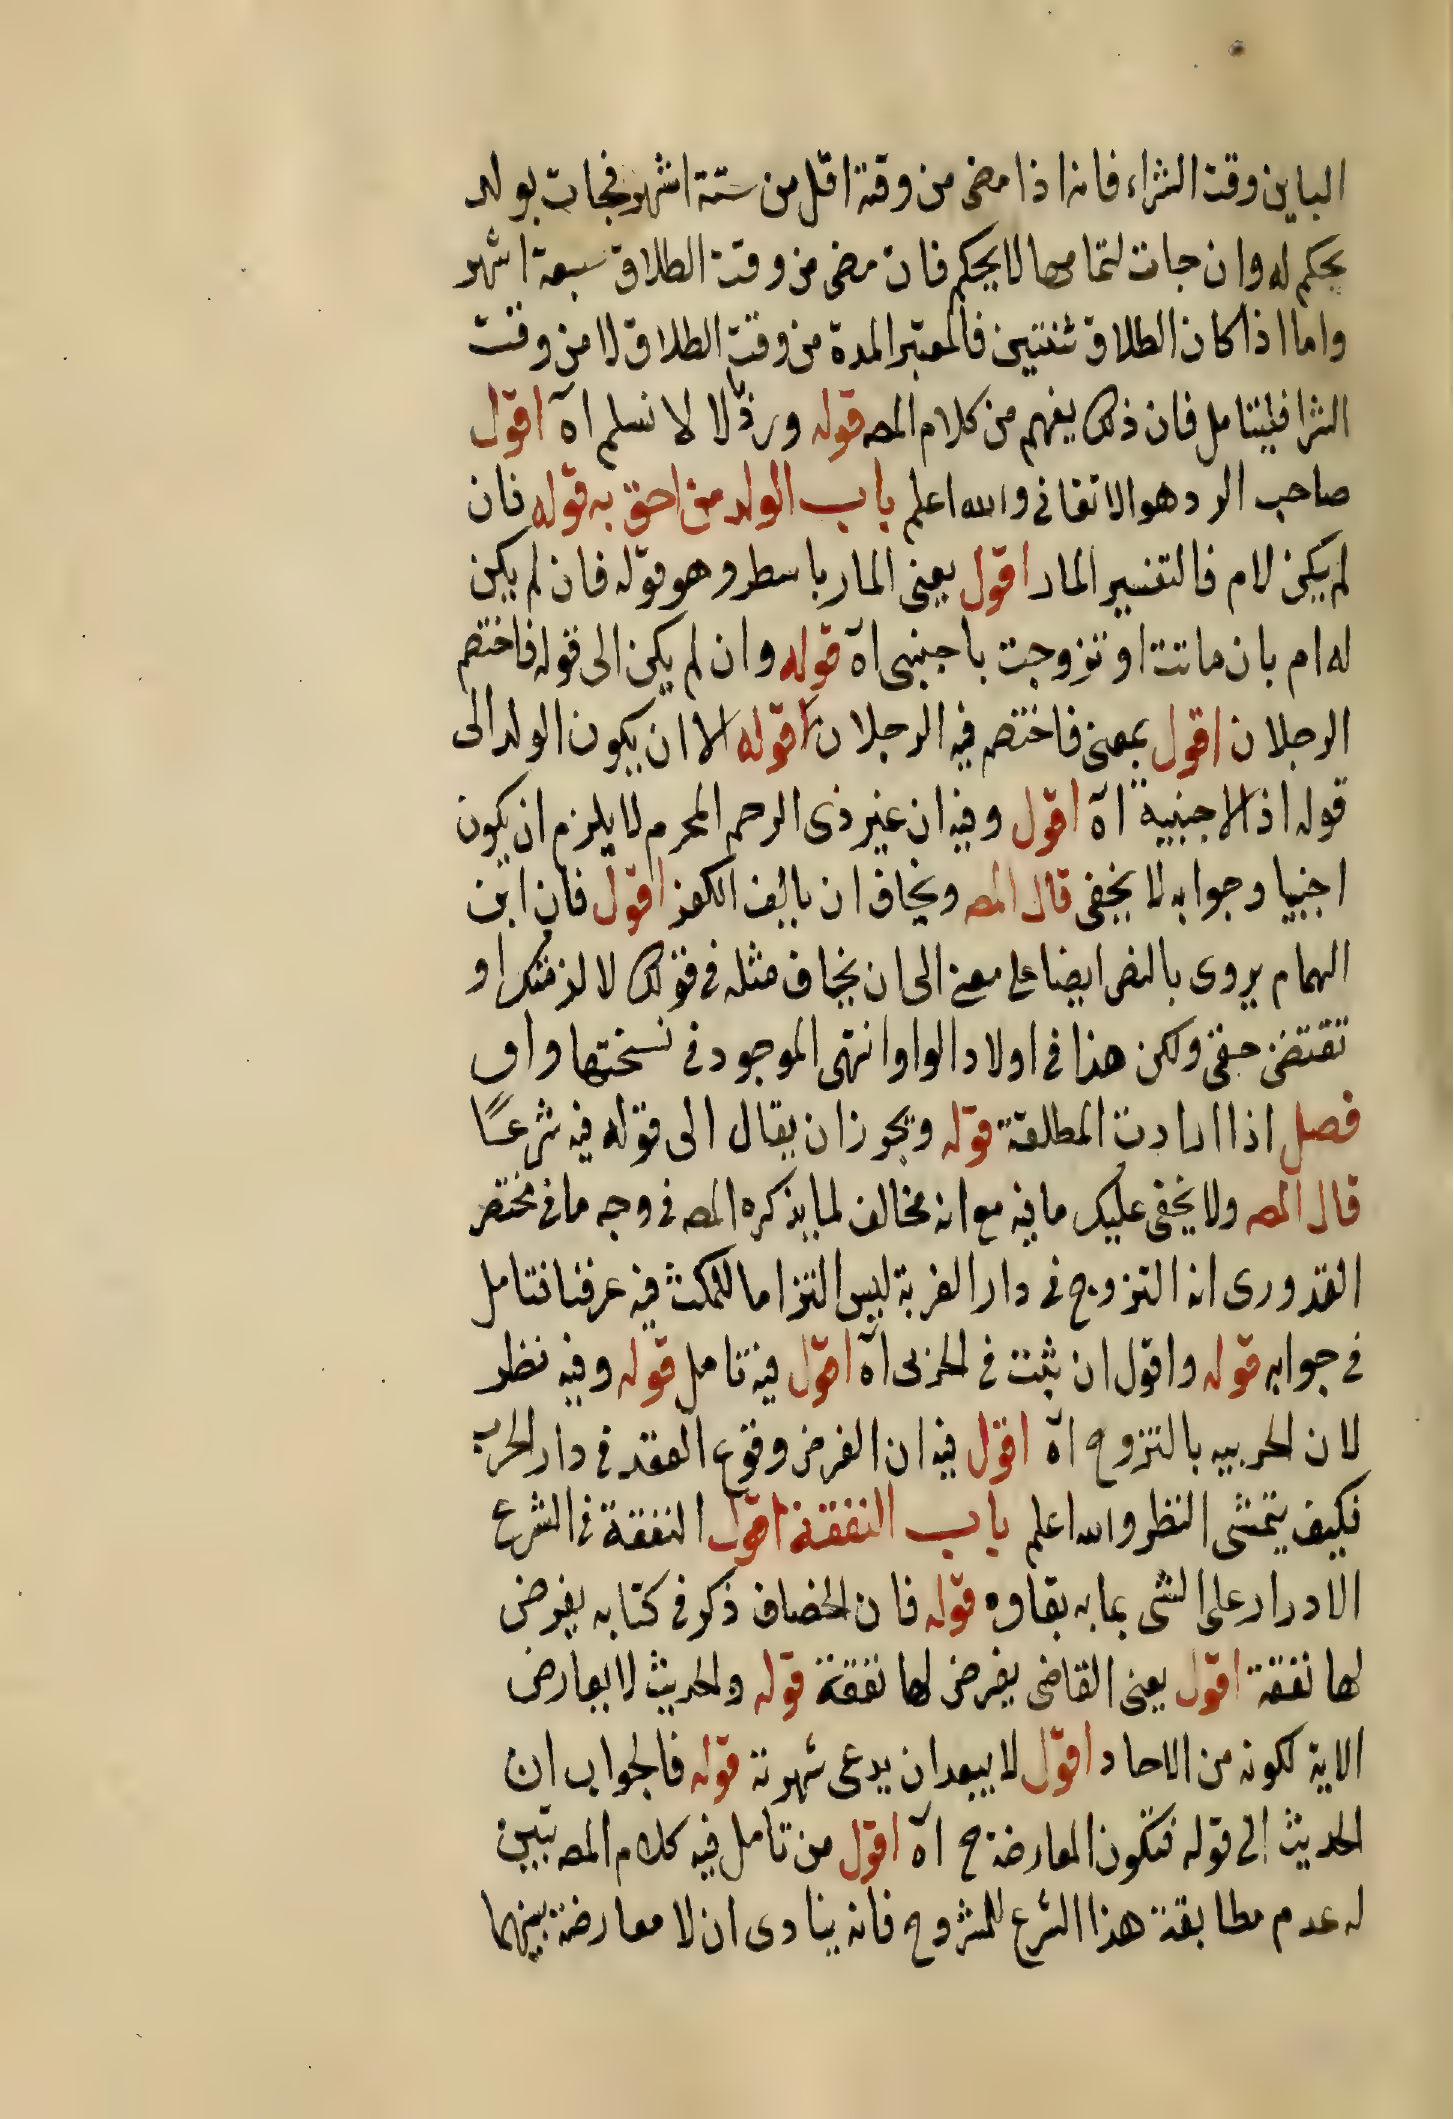 الباين وقت الشراء فانه اذا مضى من وقته اقل من ستة اشهر فجات بولد
يحكم له وان جات لتمامها لا يحكم فان مضى من وقت الطلاق سبعة اشهر
واما اذا كان الطلاق ثنتين فالمعتبر المدة من وقت الطلاق لا من وقت
الشرا فليتامل فان ذلك يفهم من كلام المصـ قوله ورد بلا لا نسلم اه اقول
صاحب الرد هو الاتقانى والله اعلم باب الولد من احق به قوله فان
لم يكن لام فالتفسير المار اقول يعنى المار باسطر وهو قوله فان لم يكن
له ام بان ماتت او تزوجت باجنبى اه قوله وان لم يكن الى قوله فاختصم
الرجلان اقول بمعنى فاختصم فيه الرجلان قوله الا ان يكون الولد الى
قوله اذ الاجنبية اه اقول وفيه ان غير ذى الرحم المحرم لا يلزم ان يكون
اجنبيا وجوابه لا يخفى قال المصـ ويخاف ان يالف الكفر اقول قال ابن
الهمام يروى بالنصب ايضا على معنى الى ان يخاف مثله فى قولك لا لزمنك او
تقتضى حقى ولكن هذا فى اولاد الواو انتهى الموجود فى نسختها واو
فصل اذا ارادت المطلقة قوله ويجوز ان يقال الى قوله فيه شرعا
قال المصـ ولا يخفى عليك ما فيه مع انه مخالف لما يذكره المصـ فى وجه ما فى مختصر
القدورى انه التزوج فى دار الغربة ليس التزاما للمكث فيه عرفا فتامل
فى جوابه قوله واقول ان ثبت فى الحربى اه اقول فيه تامل قوله وفيه نظر
لان الحربيه بالتزوج اه اقول فيه ان الفرض وقوع العقد فى دار الحرب
فكيف يتمشى النظر والله اعلم باب النفقة اقول النفقة فى الشرع
الادرار على الشى بما به بقاوه قوله فان الخصاف ذكر فى كتابه يفرض
لها نفقة اقول يعنى القاضى يفرض لها نفقة قوله والحديث لا يعارض
الاية لكونه من الاحاد اقول لا يبعد ان يدعى شهرته قوله فالجواب ان
الحديث الى قوله فتكون المعارضة ح اه اقول من تامل فيه كلام المصـ تبين
له عدم مطابقة هذا الشرع للمشروح فانه ينادى ان لا معارضة بينهما